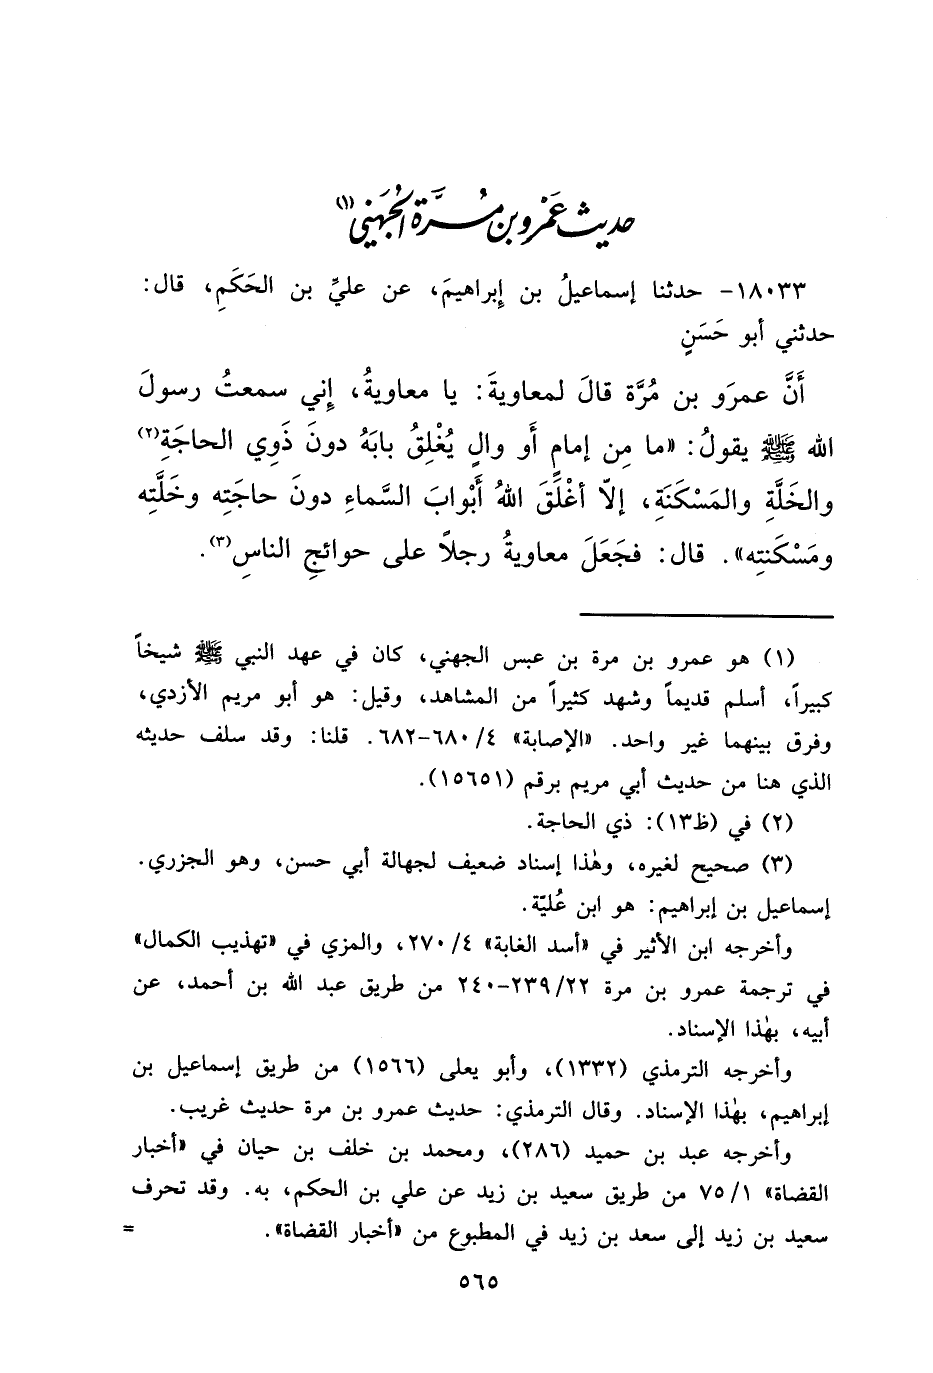 حديث عَمْرو بن مُرَّة الجُهَنِي(١)
١٨٠٣٣- حدثنا إسماعيلُ بن إِبراهيمَ، عن عليِّ بن الحَكَمِ، قال:
حدثني أبو حَسَنٍ
أَنَّ عمرَو بن مُرَّة قالَ لمعاويةَ: يا معاويةُ، إِني سمعتُ رسولَ
الله ﷺ يقولُ: «ما مِن إمامٍ أَو والٍ يُغْلِقُ بابَهُ دونَ ذَوِي الحاجَةِ(٢)
والخَلَّةِ والمَسْكَنَةِ، إلاّ أغْلَقَ اللهُ أَبْوابَ السَّماءِ دونَ حاجَتِه وخَلَّتِه
ومَسْكَنتِه». قال: فجَعَلَ معاويةُ رجلاً على حوائجِ الناسِ(٣).
(١) هو عمرو بن مرة بن عبس الجهني، كان في عهد النبي ﷺ شيخاً
كبيراً، أسلم قديماً وشهد كثيراً من المشاهد، وقيل: هو أبو مريم الأزدي،
وفرق بينهما غير واحد. «الإصابة» ٤/ ٦٨٠-٦٨٢. قلنا: وقد سلف حديثه
الذي هنا من حديث أبي مريم برقم (١٥٦٥١).
(٢) في (ظ١٣): ذي الحاجة.
(٣) صحيح لغيره، وهٰذا إسناد ضعيف لجهالة أبي حسن، وهو الجزري.
إسماعيل بن إبراهيم: هو ابن عُليّة.
وأخرجه ابن الأثير في «أسد الغابة» ٤/ ٢٧٠، والمزي في «تهذيب الكمال»
في ترجمة عمرو بن مرة ٢٢/ ٢٣٩-٢٤٠ من طريق عبد الله بن أحمد، عن
أبيه، بهٰذا الإسناد.
وأخرجه الترمذي (١٣٣٢)، وأبو يعلى (١٥٦٦) من طريق إسماعيل بن
إبراهيم، بهٰذا الإسناد. وقال الترمذي: حديث عمرو بن مرة حديث غريب.
وأخرجه عبد بن حميد (٢٨٦)، ومحمد بن خلف بن حيان في «أخبار
القضاة» ١/ ٧٥ من طريق سعيد بن زيد عن علي بن الحكم، به. وقد تحرف
سعيد بن زيد إلى سعد بن زيد في المطبوع من «أخبار القضاة». =
٥٦٥